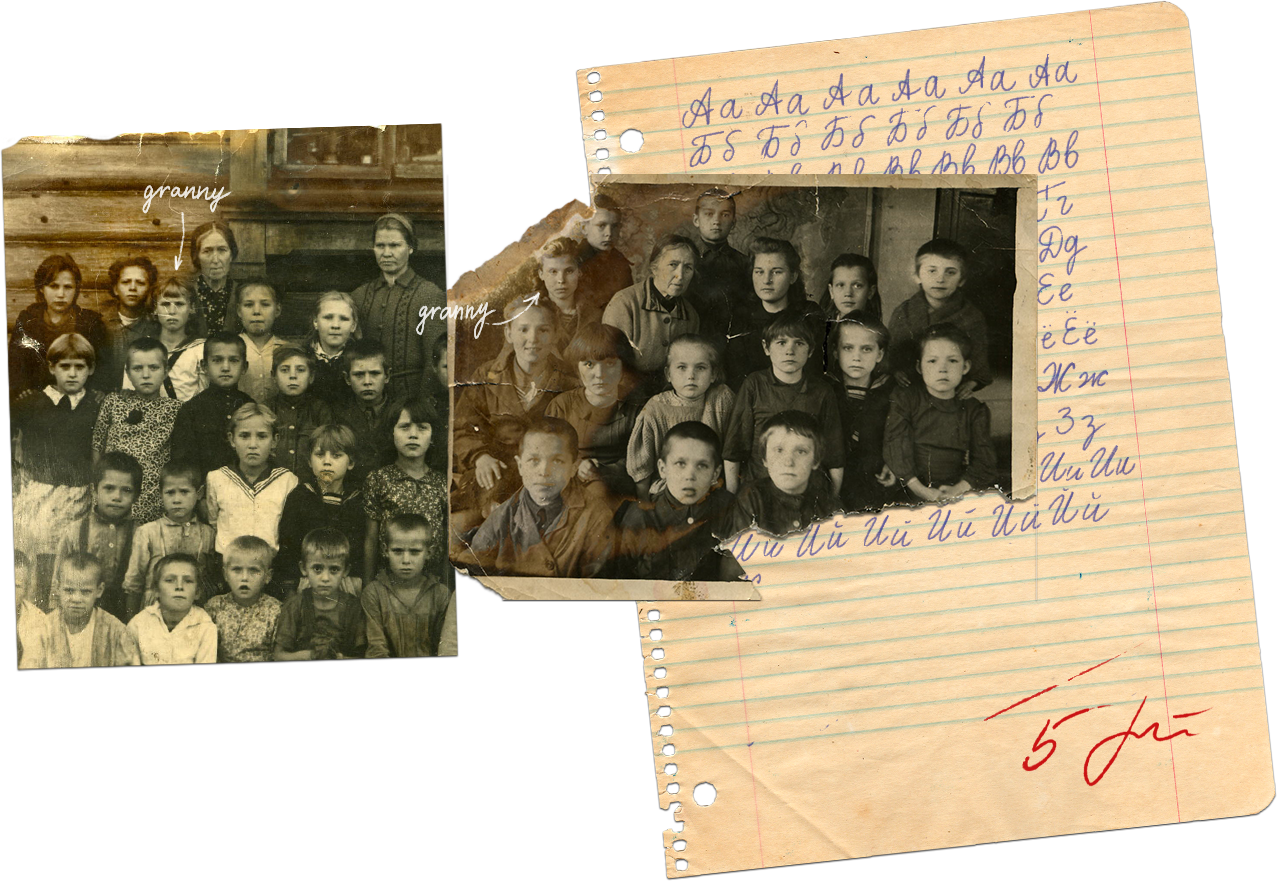 granny
granny
Аа Аа Аа Аа Аа Аа
Бб Бб Бб Бб Бб Бб
Вв Вв Вв
Гг
Дд
Ее
ё Ёё
Жж
Зз
Ии Ии
Йй Йй Йй Йй Йй
5